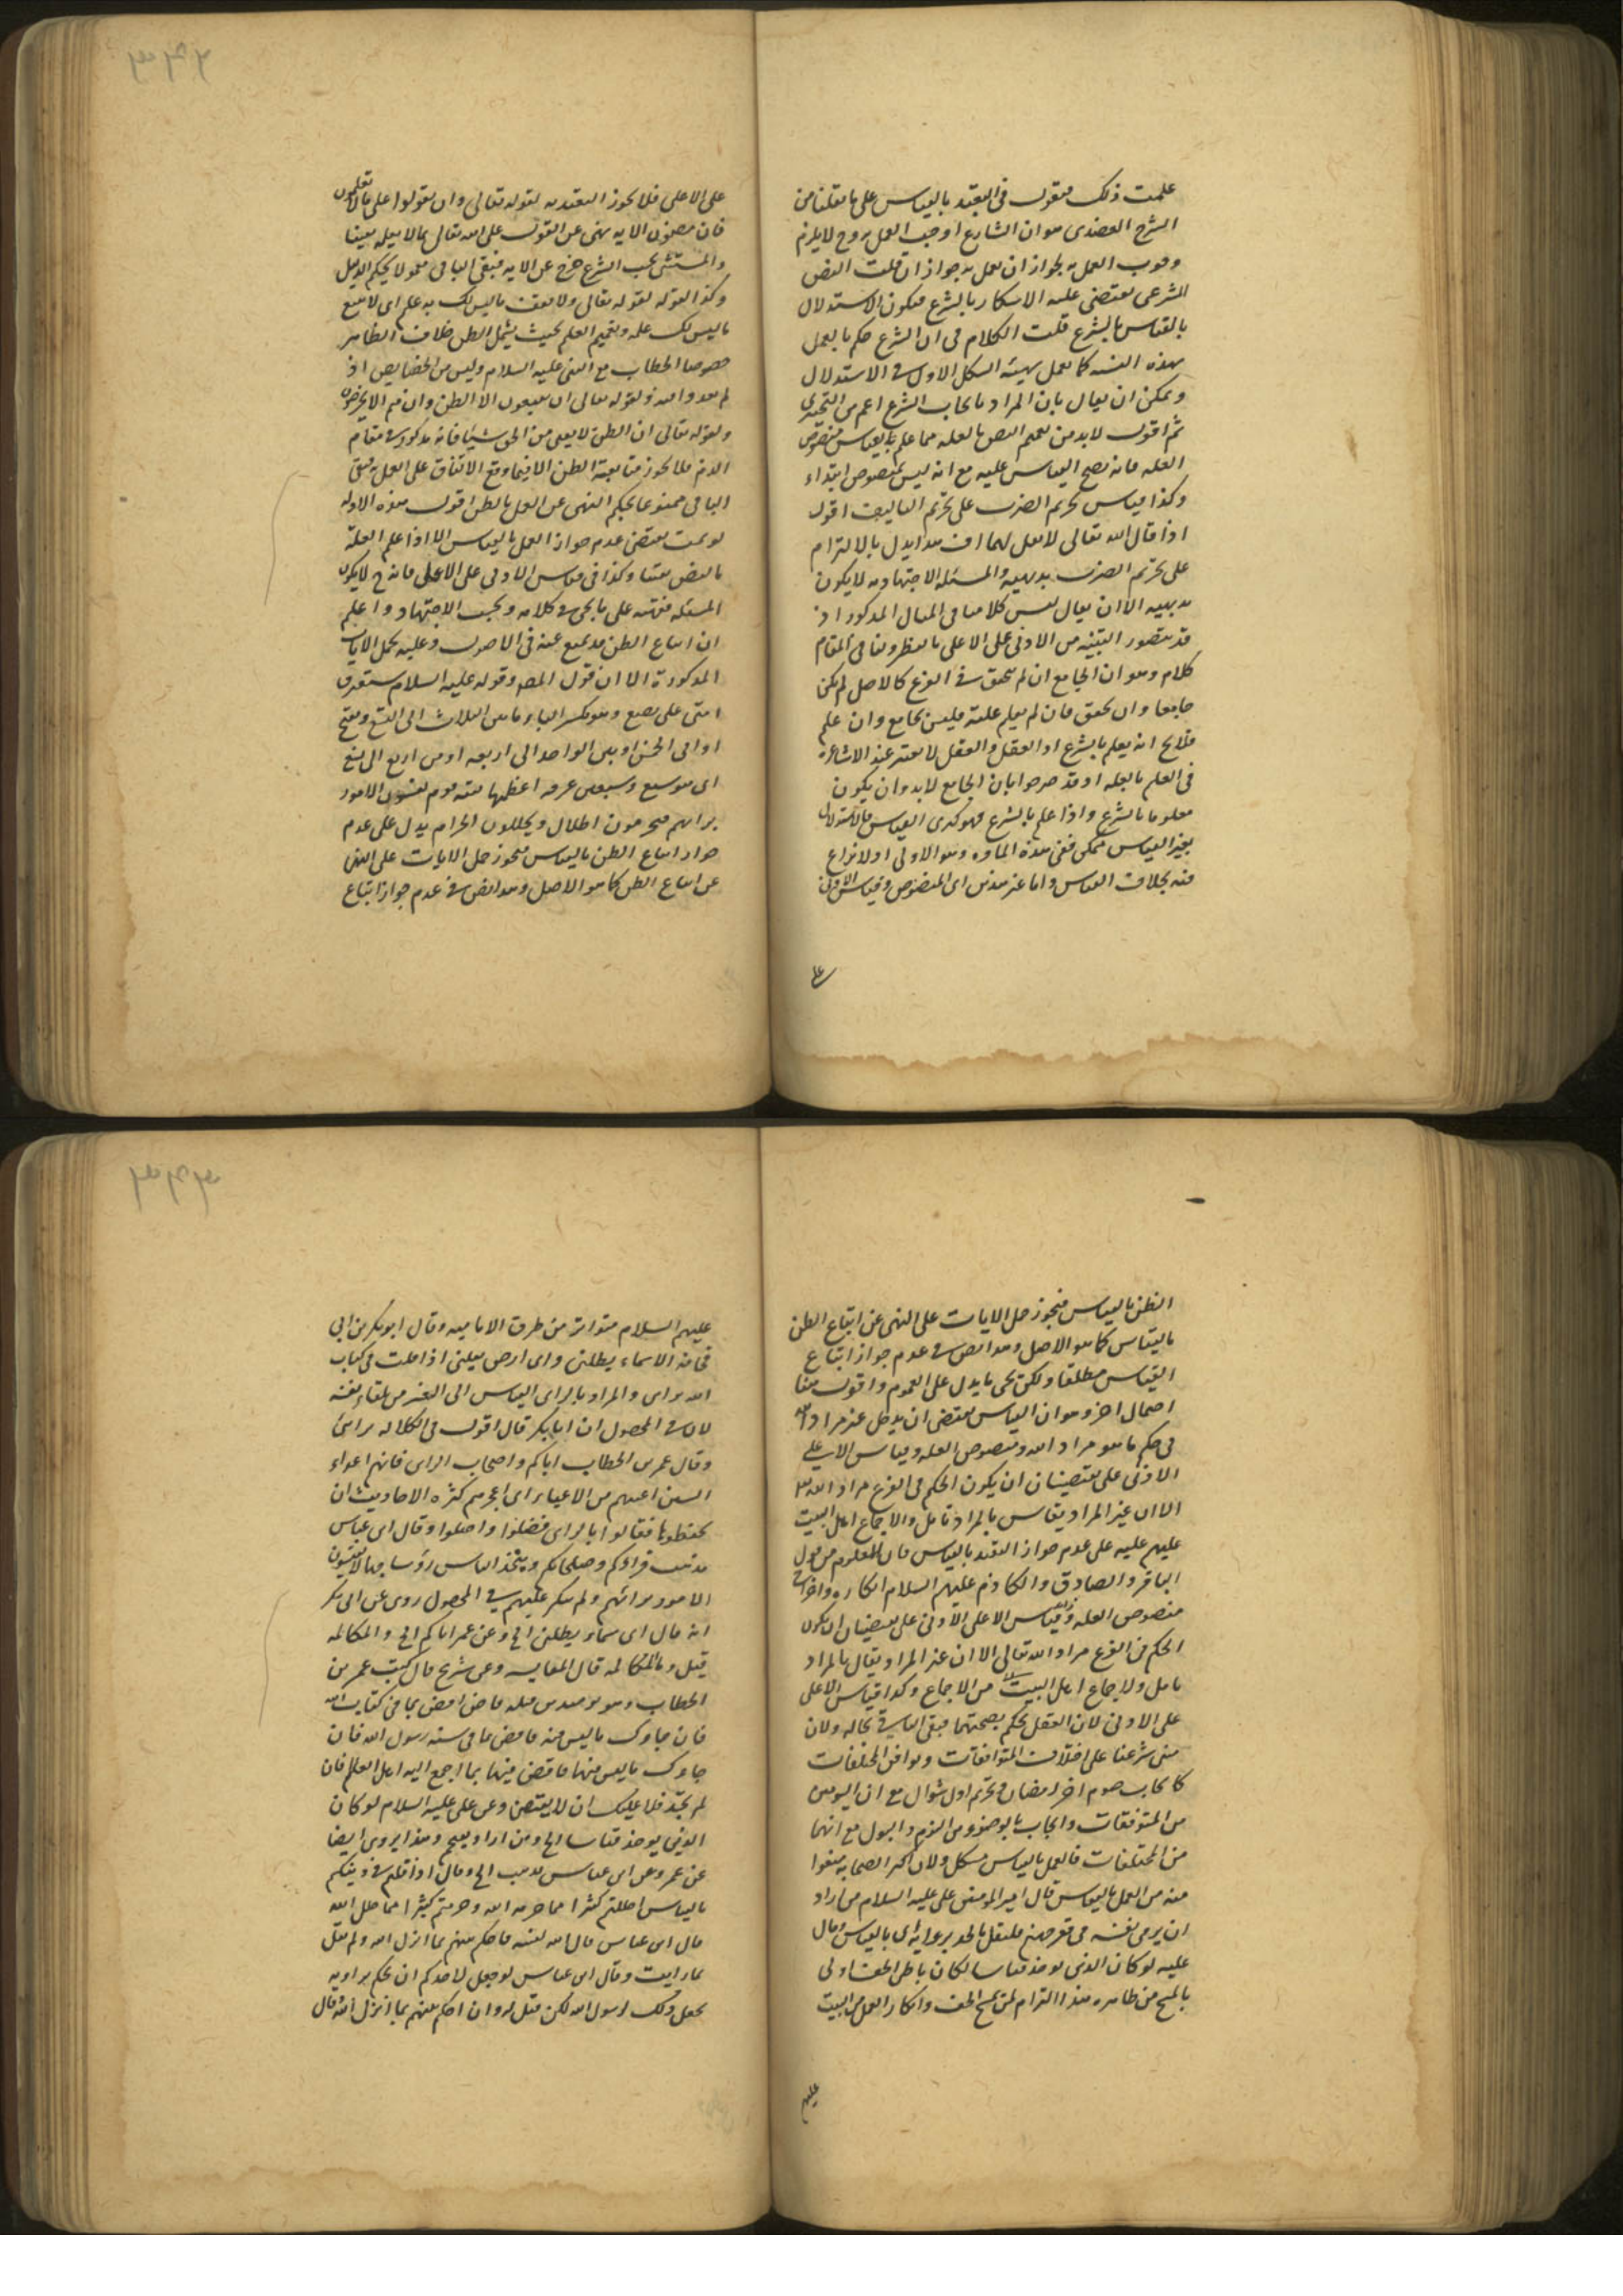 علمت ذلك فنقول في التعبد بالقياس على ما نقلنا من
الشرح العضدي هو ان الشارع اوجب العمل به وح لا يلزم
وجوب العمل به لجواز ان نعمل به جواز ان قلت النص
الشرعي يقتضي علية الاسكار بالشرع فيكون الاستدلال
بالقياس بالشرع قلت الكلام في ان الشرع حكم بالعمل
بهذه كما نعمل بهيئة الشكل الاول في الاستدلال
ويمكن ان يقال بان المراد بايجاب الشرع اعم من
ثم اقول لابد من تعميم النص بالعلة مما علم بالقياس منصوص
العلة فانه يصح القياس عليه مع انه ليس بمنصوص ابتداء
وكذا قياس تحريم الضرب على تحريم التافيف اقول
اذا قال الله تعالى لا تقل لهما اف هذا يدل بالالتزام
على تحريم الضرب بديهية والمسئلة الاجتهادية لا يكون
بديهية الا ان يقال ليس كلامنا في المثال المذكور اذ
قد يتصور التنبيه من الادنى على الاعلى بالنظر وهنا في المقام
كلام وهو ان الجامع ان لم يتحقق في الفرع كالاصل لم يكن
جامعا وان تحقق فان لم يعلم عليته فليس بجامع وان علم
فلا يخ انه يعلم بالشرع او العقل والعقل لا يعتبر عند الاشاعرة
في العلم بالعلة اذ قد صرحوا بان الجامع لابد وان يكون
معلوما بالشرع واذا علم بالشرع فهو كذي القياس فالاستدلال
بغير القياس ممكن ففي هذه المادة وهو الاولى اذ لا نزاع
فيه بخلاف القياس واما غير هذين اى المنصوص وقياس الادنى
على
على الاعلى فلا يجوز التعبد به لقوله تعالى وان تقولوا على ما لا تعلمون
فان مضمون الاية نهي عن القول على الله تعالى بما لا يعلم يقينا
والمستثنى بحسب الشرع خرج عن الاية فبقي الباقي معمولا بحكم الدليل
وكذا القول لقوله تعالى ولا تقف ما ليس لك به علم اى لا تتبع
ما ليس لك علم وتعميم العلم بحيث يشمل الظن خلاف الظاهر
خصوصا الخطاب مع النبي عليه السلام وليس من الخصايص اذ
لم يعدوا منه ولقوله تعالى ان يتبعون الا الظن وان هم الا يخرصون
ولقوله تعالى ان الظن لا يغني من الحق شيئا فانه مذكور في مقام
الذم فلا يجوز متابعة الظن الا فيما وقع الاتفاق على العمل به فبقي
الباقي ممنوعا بحكم النهي عن العمل بالظن اقول هذه الادلة
لو تمت يقتضي عدم جواز العمل بالقياس الا اذا علم العلة
بالنص يقينا وكذا في قياس الادنى على الاعلى فانه ح لا يكون
المسئلة على ما يجئ في كلامه وبحث الاجتهاد واعلم
ان اتباع الظن مد يمنع عنه في الاصول وعليه يحمل الايات
المذكورة الا ان قول المص وقوله عليه السلام ستفترق
امتى على بضع وهو بكسر الباء ما بين الثلاث الى التسع وبفتح
او الى الخمس او بين الواحد الى اربعة او من اربع الى تسع
اى هو سبع وسبعين فرقة اعظمها فتنة قوم يقيسون الامور
برايهم فيحرمون الحلال ويحللون الحرام يدل على عدم
جواز اتباع الظن بالقياس فيجوز حمل الايات على النهي
عن اتباع الظن كما هو الاصل وهذا نص في عدم جواز اتباع
الظن بالقياس فيجوز حمل الايات على النهي عن اتباع الظن
بالقياس كما هو الاصل وهذا نص في عدم جواز اتباع
القياس مطلقا ولكن يجئ ما يدل على العموم واقول هنا
احتمال اخر وهو ان القياس يقتضي ان يدخل غير مراد الله
في حكم ما هو مراد الله ومنصوص العلة وقياس الاعلى على
الادنى على يقتضيان ان يكون الحكم في الفرع مراد الله
الا ان غير المراد يقاس بالمراد تامل والاجماع اهل البيت
عليهم عليه على عدم جواز التعبد بالقياس فان المعلوم من قول
الباقر والصادق والكاظم عليهم السلام انكاره واخراج
منصوص العلة وقياس الاعلى الادنى على يقتضيان ان يكون
الحكم في الفرع مراد الله تعالى الا ان غير المراد يقال بالمراد
تامل ولاجماع اهل البيت من الاجماع وكذا قياس الاعلى
على الادنى لان العقل يحكم بصحتهما فبقي الباقي بحاله ولان
مبنى شرعنا على اختلاف المتوافقات وتوافق المختلفات
كايجاب صوم اخر رمضان وتحريم اول شوال مع ان اليومين
من المتوافقات وايجاب الوضوء من النوم والبول مع انهما
من المختلفات فالعمل بالقياس مشكل ولان اكثر الصحابة منعوا
منه من العمل بالقياس قال امير المومنين على عليه السلام من اراد
ان يرمى نفسه في قعر جهنم فليقل بالجد برايه اى بالقياس وقال
عليه لو كان الدين يوخذ قياسا لكان باطن الخف اولى
بالمسح من ظاهره هذا التزام لمن مسح الخف وانكار العمل من البيت
عليهم
عليهم السلام متواتر من طرق الامامية وقال ابو بكر بن ابي
قحافة الاسماء يظلني واى ارض يقلني اذا قلت في كتاب
الله براى والمراد بالراى القياس الى الغير من تلقاء نفسه
لان في المحصول ان ابا بكر قال اقول في الكلالة برائي
وقال عمر بن الخطاب اياكم واصحاب الراى فانهم اعداء
السنن اعيتهم من الاعياء اى اعجزهم كثرة الاحاديث ان
يحفظوها فقالوا بالراى فضلوا واضلوا وقال ابن عباس
يذهب قراؤكم وصلحائكم ويتخذ الناس رؤسا جهالا يقيسون
الامور برائهم ولم ينكر عليهم في المحصول روى عن ابى بكر
انه قال اى سماء يظلني الخ وعن عمر اياكم الخ والمكايلة
قيل وما المكايلة قال المقايسة وعن شريح قال كتب عمر بن
الخطاب وهو يومئذ من قبله قاض اقض بما في كتاب الله
فان جاءك ما ليس فيه فاقض بما في سنة رسول الله فان
جاءك ما ليس فيها فاقض فيها بما اجمع اليه اهل العلم فان
لم تجد فلا عليك ان لا يقتضي وعن علي عليه السلام لو كان
الدين يوخذ قياسا الخ ومن اراد يقتحم وهذا يروى ايضا
عن عمر وعن ابن عباس يذهب الخ وقال اذا قلتم في دينكم
بالقياس احللتم كثيرا مما حرمه الله وحرمتم كثيرا مما حلل الله
قال ابن عباس قال الله لنبيه فاحكم بينهم بما انزل الله ولم يقل
بما رايت وقال ابن عباس لو جعل لاحدكم ان يحكم براويه
لجعل ذلك لرسول الله لكن قيل له وان احكم بينهم بما انزل الله قال